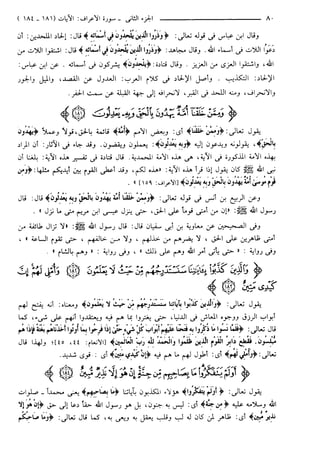 ٨٠ الجزء الثاني - سورة الأعراف: الآيات (١٨١ - ١٨٤)
وقال ابن عباس في قوله تعالى: ﴿وَذَرُوا الَّذِينَ يُلْحِدُونَ فِي أَسْمَائِهِ﴾ قال: إلحاد الملحدين: أن
دعوا اللات من أسماء الله. وقال مجاهد: ﴿وَذَرُوا الَّذِينَ يُلْحِدُونَ فِي أَسْمَائِهِ﴾ قال: اشتقوا اللات من
الله، واشتقوا العزى من العزيز. وقال قتادة: ﴿يُلْحِدُونَ﴾ يشركون في أسمائه. عن ابن عباس:
الإلحاد: التكذيب. وأصل الإلحاد في كلام العرب: العدول عن القصد، والميل والجور
والانحراف، ومنه اللحد في القبر، لانحرافه إلى جهة القبلة عن سمت الحفر.
وَمِمَّنْ خَلَقْنَا أُمَّةٌ يَهْدُونَ بِالْحَقِّ وَبِهِ يَعْدِلُونَ
يقول تعالى: ﴿وَمِمَّنْ خَلَقْنَا﴾ أي: وبعض الأمم ﴿أُمَّةٌ﴾ قائمة بالحق، قولاً وعملاً ﴿يَهْدُونَ
بِالْحَقِّ﴾، يقولونه ويدعون إليه ﴿وَبِهِ يَعْدِلُونَ﴾: يعملون ويقضون. وقد جاء في الآثار: أن المراد
بهذه الأمة المذكورة في الآية، هي هذه الأمة المحمدية. قال قتادة في تفسير هذه الآية: بلغنا أن
نبي الله ﷺ كان يقول إذا قرأ هذه الآية: «هذه لكم، وقد أعطي القوم بين أيديكم مثلها: ﴿وَمِن
قَوْمِ مُوسَىٰ أُمَّةٌ يَهْدُونَ بِالْحَقِّ وَبِهِ يَعْدِلُونَ﴾ [الأعراف: ١٥٩]».
وعن الربيع بن أنس في قوله تعالى: ﴿وَمِمَّنْ خَلَقْنَا أُمَّةٌ يَهْدُونَ بِالْحَقِّ وَبِهِ يَعْدِلُونَ﴾ قال: قال
رسول الله ﷺ: «إن من أمتي قوماً على الحق، حتى ينزل عيسى ابن مريم متى ما نزل».
وفي الصحيحين عن معاوية بن أبي سفيان قال: قال رسول الله ﷺ: «لا تزال طائفة من
أمتي ظاهرين على الحق، لا يضرهم من خذلهم، ولا من خالفهم، حتى تقوم الساعة»،
وفي رواية: «حتى يأتي أمر الله وهم على ذلك»، وفي رواية: «وهم بالشام».
وَالَّذِينَ كَذَّبُوا بِآيَاتِنَا سَنَسْتَدْرِجُهُم مِّنْ حَيْثُ لَا يَعْلَمُونَ ١٨٢ وَأُمْلِي لَهُمْ إِنَّ
كَيْدِي مَتِينٌ
يقول تعالى: ﴿وَالَّذِينَ كَذَّبُوا بِآيَاتِنَا سَنَسْتَدْرِجُهُم مِّنْ حَيْثُ لَا يَعْلَمُونَ﴾ ومعناه: أنه يفتح لهم
أبواب الرزق ووجوه المعاش في الدنيا، حتى يغتروا بما هم فيه ويعتقدوا أنهم على شيء، كما
قال تعالى: ﴿فَلَمَّا نَسُوا مَا ذُكِّرُوا بِهِ فَتَحْنَا عَلَيْهِمْ أَبْوَابَ كُلِّ شَيْءٍ حَتَّىٰ إِذَا فَرِحُوا بِمَا أُوتُوا أَخَذْنَاهُم بَغْتَةً فَإِذَا هُم
مُّبْلِسُونَ. فَقُطِعَ دَابِرُ الْقَوْمِ الَّذِينَ ظَلَمُوا وَالْحَمْدُ لِلَّهِ رَبِّ الْعَالَمِينَ﴾ [الأنعام: ٤٤، ٤٥]؛ ولهذا قال
تعالى: ﴿وَأُمْلِي لَهُمْ﴾ أي: أطول لهم ما هم فيه ﴿إِنَّ كَيْدِي مَتِينٌ﴾ أي: قوي شديد.
أَوَلَمْ يَتَفَكَّرُوا مَا بِصَاحِبِهِم مِّن جِنَّةٍ إِنْ هُوَ إِلَّا نَذِيرٌ مُّبِينٌ
يقول تعالى: ﴿أَوَلَمْ يَتَفَكَّرُوا﴾ هؤلاء المكذبون بآياتنا ﴿مَا بِصَاحِبِهِم﴾ يعني محمداً - صلوات
الله وسلامه عليه ﴿مِّن جِنَّةٍ﴾ أي: ليس به جنون، بل هو رسول الله حقاً دعا إلى حق ﴿إِنْ هُوَ إِلَّا
نَذِيرٌ مُّبِينٌ﴾ أي: ظاهر لمن كان له لب وقلب يعقل به ويعي به، كما قال تعالى: ﴿وَمَا صَاحِبُكُم